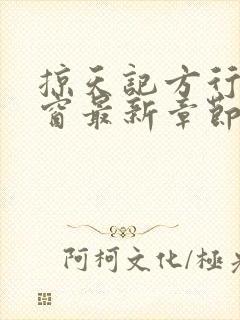 掠天記方行
窗最新章節
阿柯文化/極光